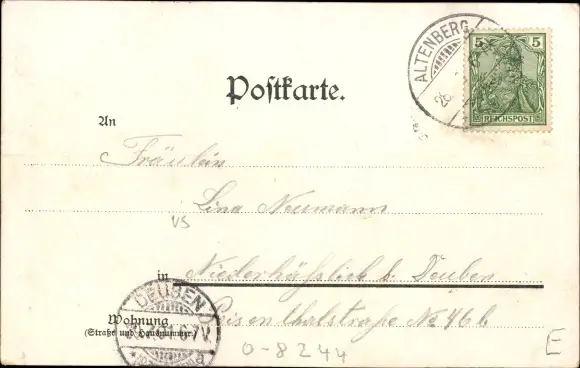 ALTENBERG
5 5
REICHSPOST
Postkarte.
An
Fräulein
Lina Neumann
VS
in Niederhässlich b. Deuben
DEUBEN
Wohnung
(Straße und Hausnummer)
No 46 b
0-8244
E